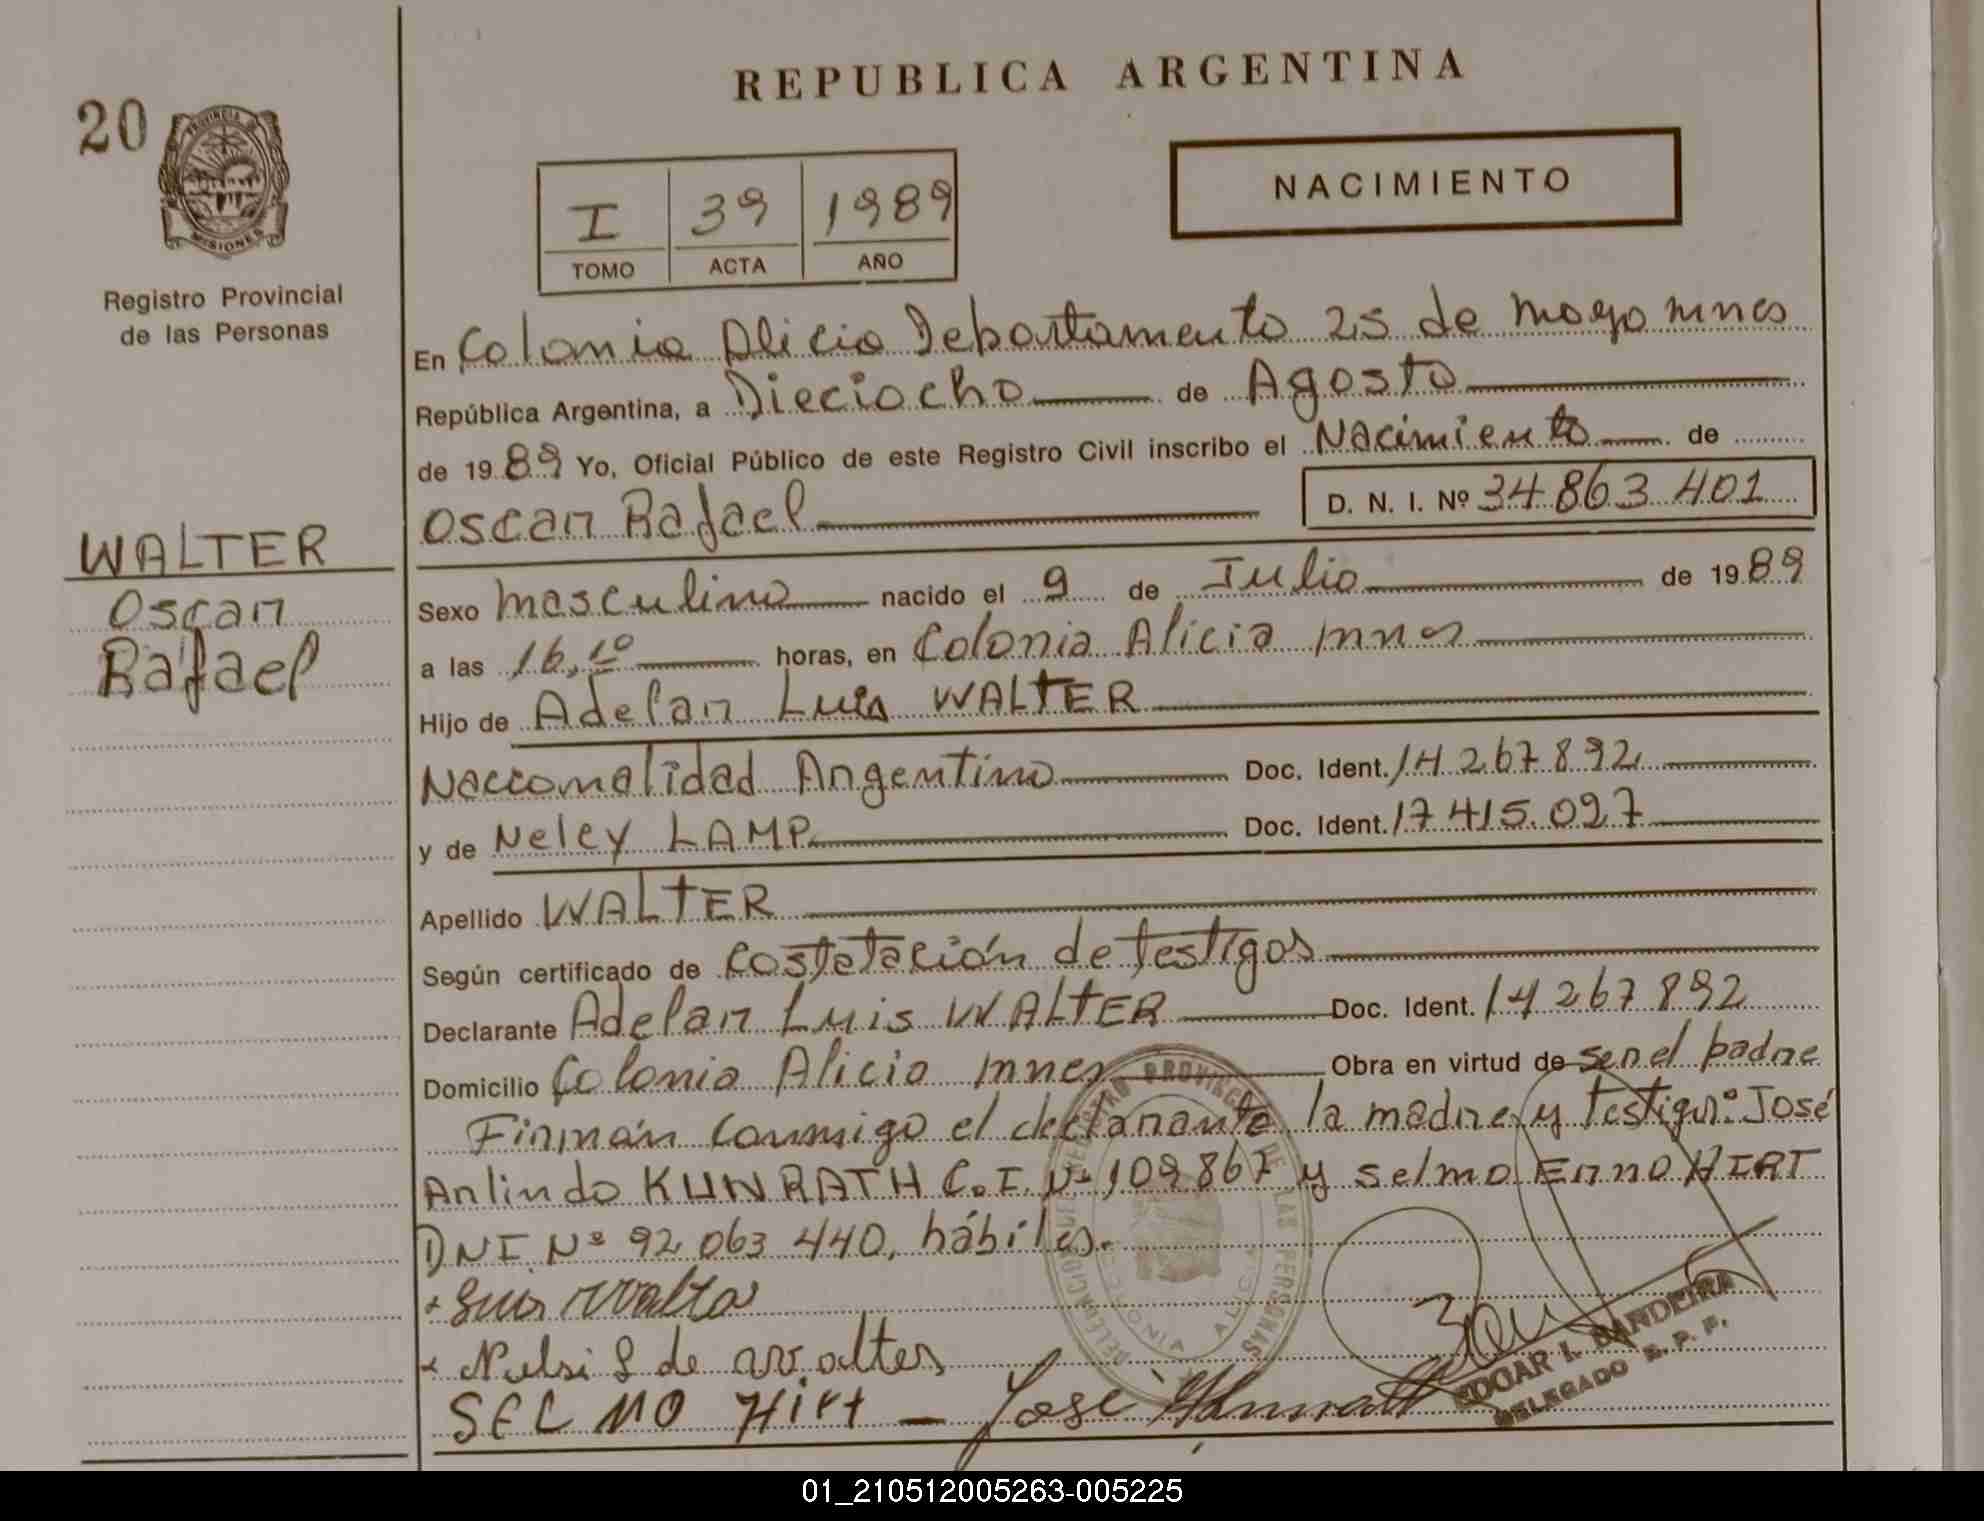 REPUBLICA ARGENTINA
20
PROVINCIA DE
MISIONES
Registro Provincial
de las Personas
NACIMIENTO
I 39 1989
TOMO ACTA AÑO
En Colonia Alicia Departamento 25 de Mayo mnes
República Argentina, a Dieciocho de Agosto
de 1989 Yo, Oficial Público de este Registro Civil inscribo el Nacimiento de
Oscar Rafael D. N. I. Nº 34.863.401
WALTER
Oscar
Rafael
Sexo masculino nacido el 9 de Julio de 1989
a las 16,10 horas, en Colonia Alicia mnes
Hijo de Adelar Luis WALTER
Naccionalidad Argentino Doc. Ident. 14.267.892
y de Neley LAMP Doc. Ident. 17.415.027
Apellido WALTER
Según certificado de Costatación de testigos
Declarante Adelar Luis WALTER Doc. Ident. 14.267.892
Domicilio Colonia Alicia mnes Obra en virtud de ser el padre
Firmán conmigo el declarante, la madre y testigos: José
Arlindo KUNRATH C.I. Nº 109.867 y Selmo Enno HIRT
DNI Nº 92.063.440, hábiles.
Luis Walter
de Walter
SELMO Hirt - José
EDGAR I. BANDEIRA
DELEGADO R. P. P.
REGISTRO PROVINCIAL DE LAS PERSONAS
COLONIA ALICIA
01_210512005263-005225